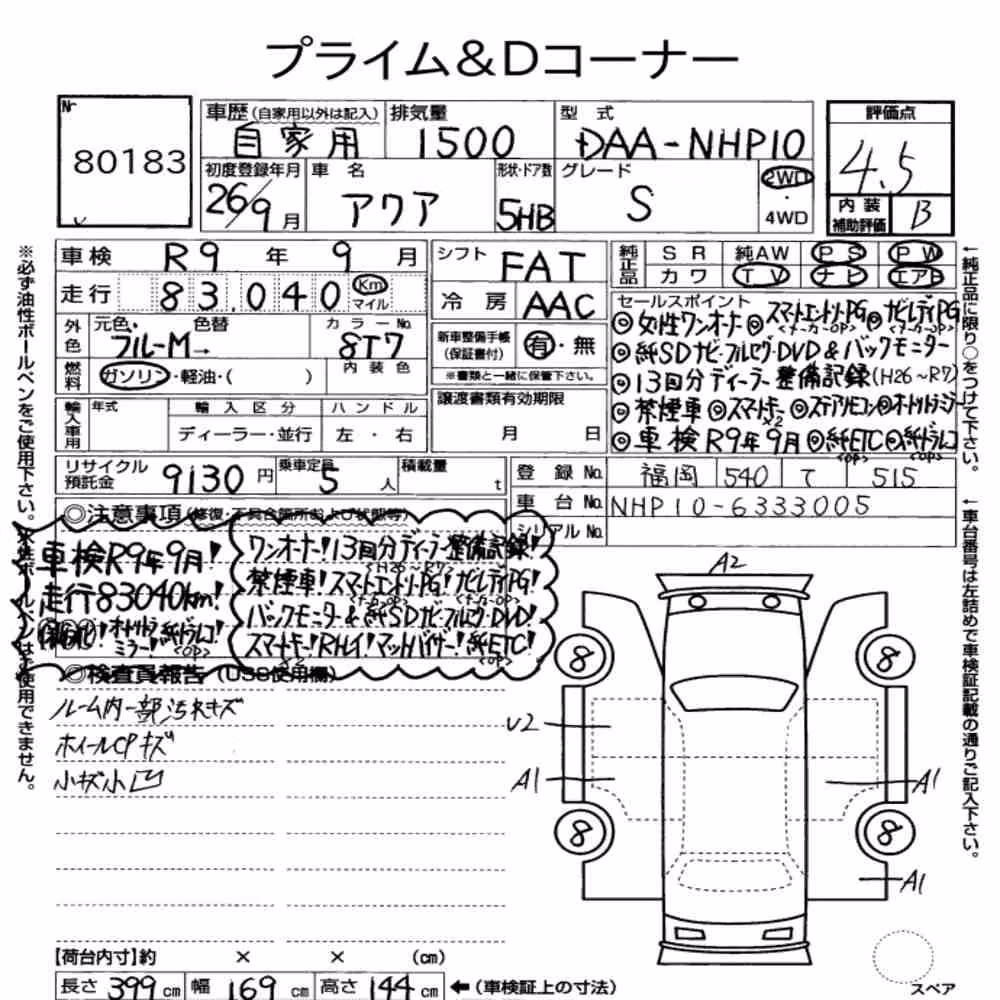 プライム&Dコーナー
Nr
80183
車歴(自家用以外は記入) 自家用
排気量 1500
型式 DAA-NHP10
評価点 4.5
内装補助評価 B
初度登録年月 26/9月
車名 アクア
形状・ドア数 5HB
グレード S
2WD・4WD
車検 R9年 9月
走行 83,040 Km マイル
外色 元色・色替 ブルーM→
カラーNo. 8T7
燃料 ガソリン・軽油・( )
内装色
輸入車用 年式 輸入区分 ハンドル
ディーラー・並行 左・右
シフト FAT
冷房 AAC
新車整備手帳(保証書付) 有・無
※書類と一緒に保管下さい。
譲渡書類有効期限
月 日
純正品 SR 純AW PS PW
カワ TV ナビ エアB
セールスポイント
◎女性ワンオーナー◎スマートエントリーPG◎ナビレディPG
<メーカーOP> <メーカーOP>
◎純SDナビ・フルセグ・DVD&バックモニター
◎13回分ディーラー整備記録(H26~R7)
◎禁煙車◎スマートキー×2◎ステアリモコン◎オートドルミラー
◎車検R9年9月◎純ETC<OP>◎純ドラレコ<OP>
リサイクル預託金 9130円
乗車定員 5人
積載量 t
登録No. 福岡 540 て 515
車台No. NHP10-6333005
シリアルNo.
◎注意事項(修復・不具合箇所および状態等)
車検R9年9月!
走行83040km!
オートドルミラー!純ドラレコ!
<OP>
ワンオーナー!13回分ディーラー整備記録!
<H26~R7>
禁煙車!スマートエントリーPG!ナビレディPG!
<メーカーOP> <メーカーOP>
バックモニター&純SDナビ・フルセグ・DVD!
スマートキー×2!RHレイ!マットバイザー!純ETC!
<OP>
◎検査員報告(USS使用欄)
ルーム内一部汚れキズ
ホイールCPキズ
小キズ小凹
A2
8
8
U2
A1
A1
8
8
A1
スペア
【荷台内寸】約 × × (cm)
長さ 399cm 幅 169cm 高さ 144cm ←(車検証上の寸法)
※必ず油性ボールペンをご使用下さい。水性ボールペンは使用できません。
←純正品に限り○をつけて下さい。
←車台番号は左詰めで車検証記載の通りご記入下さい。